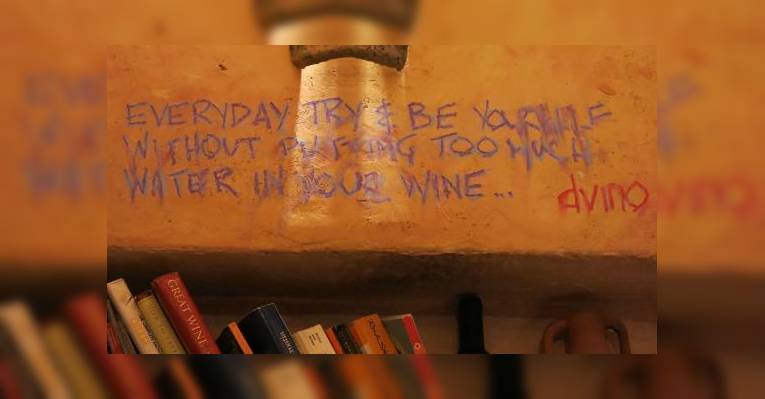 EVERYDAY TRY & BE YOURSELF
WITHOUT PUTTING TOO MUCH
WATER IN YOUR WINE...
dvino
GREAT WINE